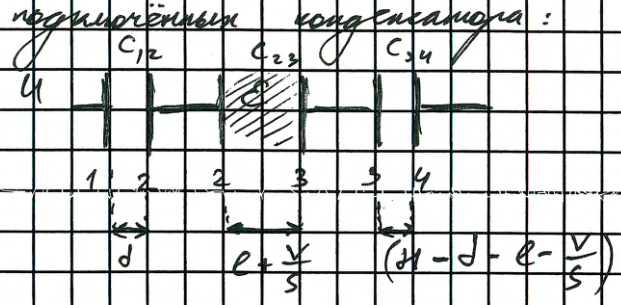 подключённых конденсатора:
C₁₂ C₂₃ C₃₄
ε
1 2 2 3 3 4
d l + V/S (H - d - l - V/S)